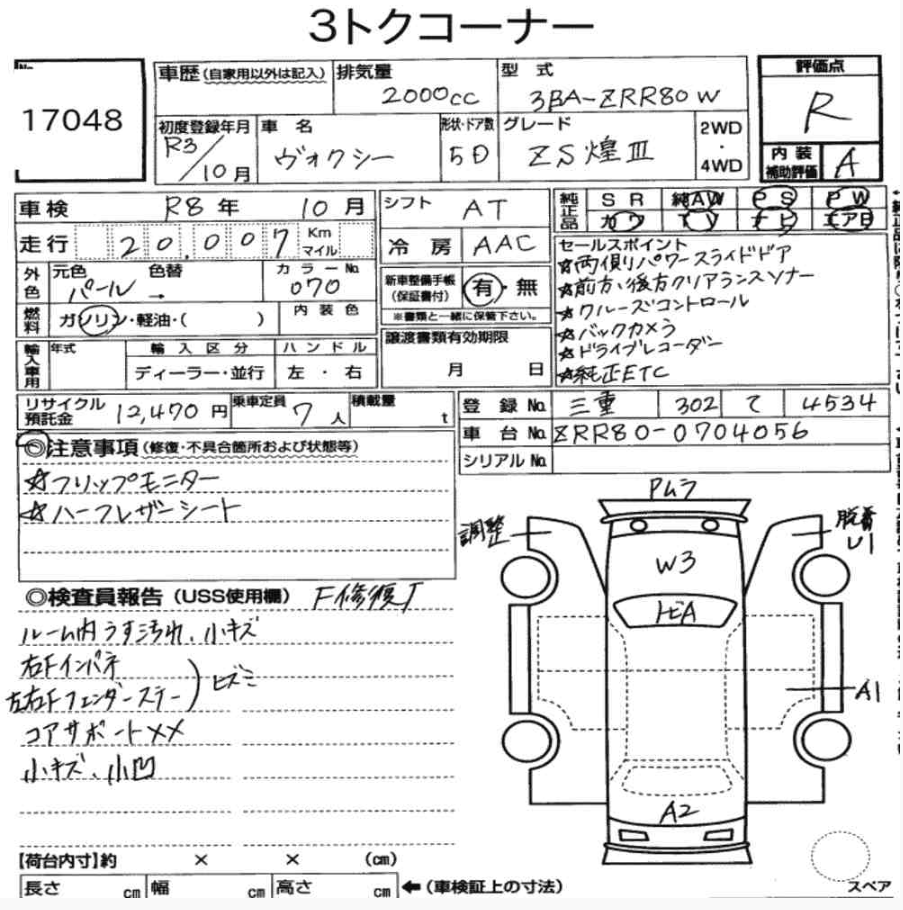 3トクコーナー
17048
車歴 (自家用以外は記入)
排気量 2000cc
型式 3BA-ZRR80W
評価点 R
初度登録年月 R3/10月
車名 ヴォクシー
形状・ドア数 5D
グレード ZS煌Ⅲ
2WD・4WD
内装補助評価 A
車検 R8年 10月
シフト AT
純正品 SR 純AW PS PW
カワ TV ナビ エアB
走行 20,007 Km マイル
冷房 AAC
外色 元色 パール 色替 → カラーNo. 070
新車整備手帳(保証書付) 有・無
※書類と一緒に保管下さい。
燃料 ガソリン・軽油・( )
内装色
セールスポイント
☆両側パワースライドドア
☆前方、後方クリアランスソナー
☆クルーズコントロール
☆バックカメラ
☆ドライブレコーダー
☆純正ETC
譲渡書類有効期限
月 日
輸入車用 年式 輸入区分 ディーラー・並行 ハンドル 左・右
リサイクル預託金 12,470円 乗車定員 7人 積載量 t
登録No. 三重 302 て 4534
車台No. ZRR80-0704056
シリアルNo.
◎注意事項 (修復・不具合箇所および状態等)
☆フリップモニター
☆ハーフレザーシート
◎検査員報告 (USS使用欄) F修復有
ルーム内うす汚れ、小キズ
右Fインパネ
左右Fフェンダーステー ) ヒズミ
コアサポート××
小キズ、小凹
Pムラ
調整
脱着
U1
W3
トビA
A1
A2
【荷台内寸】約 × × (cm)
長さ cm 幅 cm 高さ cm ←(車検証上の寸法)
スペア